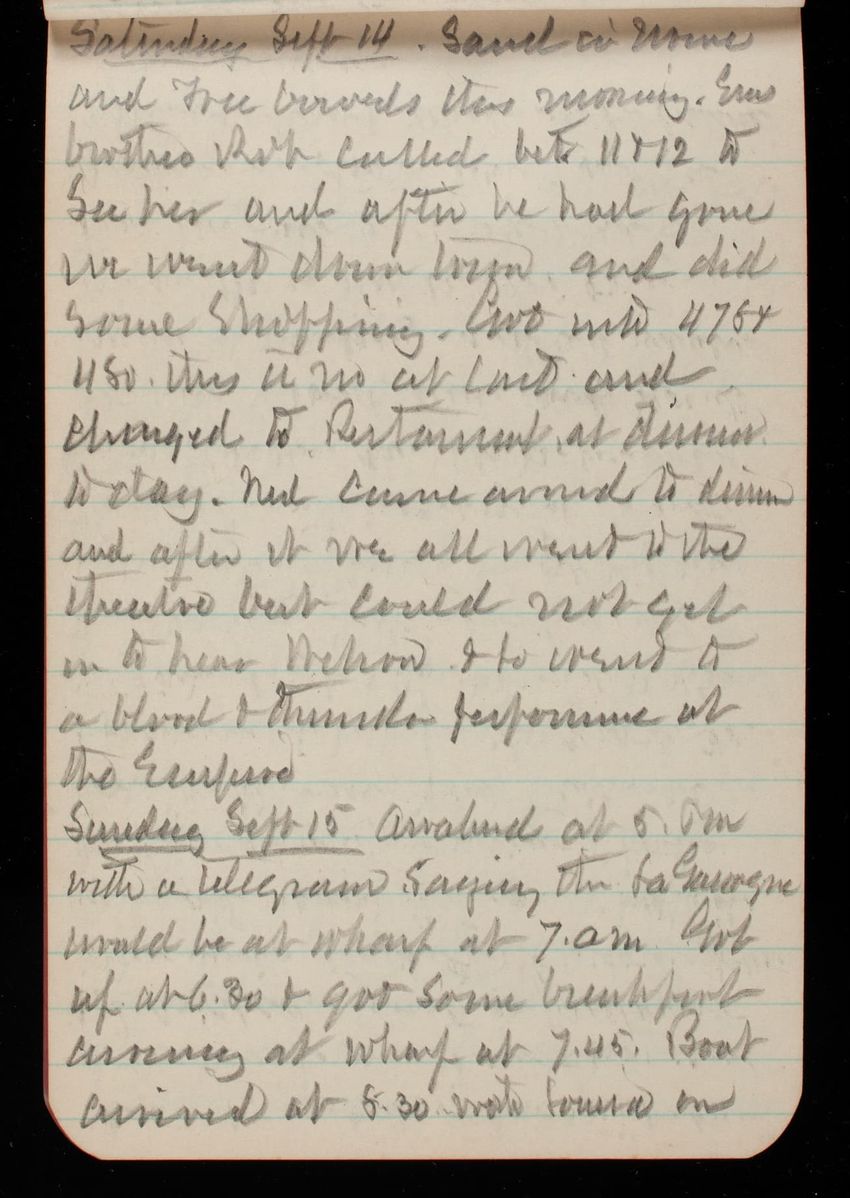 Saturday Sept 14. Sand in urine
and free bowels this morning. Em's
brother Rob called bet 11 & 12 to
See her and after he had gone
we went down town and did
some Shopping. Got into 478 &
480. this at last and
changed to Restaurant at dinner
to day. Ned came around to dinner
and after it we all went to the
theatre but could not get
in to hear & so went to
a blood & thunder performance at
the
Sunday Sept 15 Awakened at 5. am
with a telegram Saying the La Gascogne
would be at wharf at 7. am Got
up at 6.30 & got some breakfast
arriving at wharf at 7.45. Boat
arrived at 8.30 with Louisa on